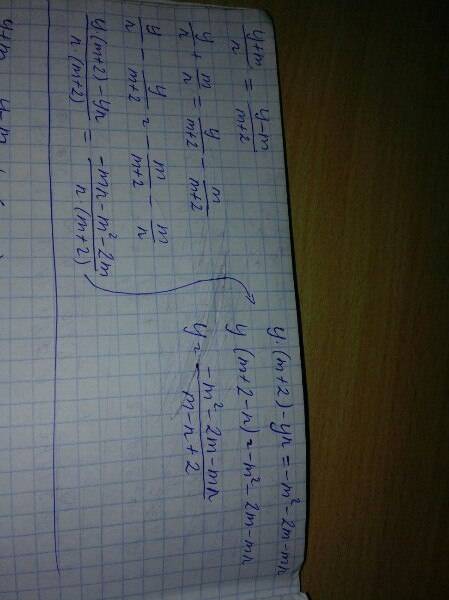 \frac{y+m}{n} = \frac{y-m}{m+2}
\frac{y}{n} + \frac{m}{n} = \frac{y}{m+2} - \frac{m}{m+2}
\frac{y}{n} - \frac{y}{m+2} = -\frac{m}{m+2} - \frac{m}{n}
\frac{y·(m+2)-yn}{n·(m+2)} = \frac{-mn-m²-2m}{n·(m+2)}
y·(m+2)-yn = -m²-2m-mn
y(m+2-n) = -m²-2m-mn
y = \frac{-m²-2m-mn}{m-n+2}
y+m y-m